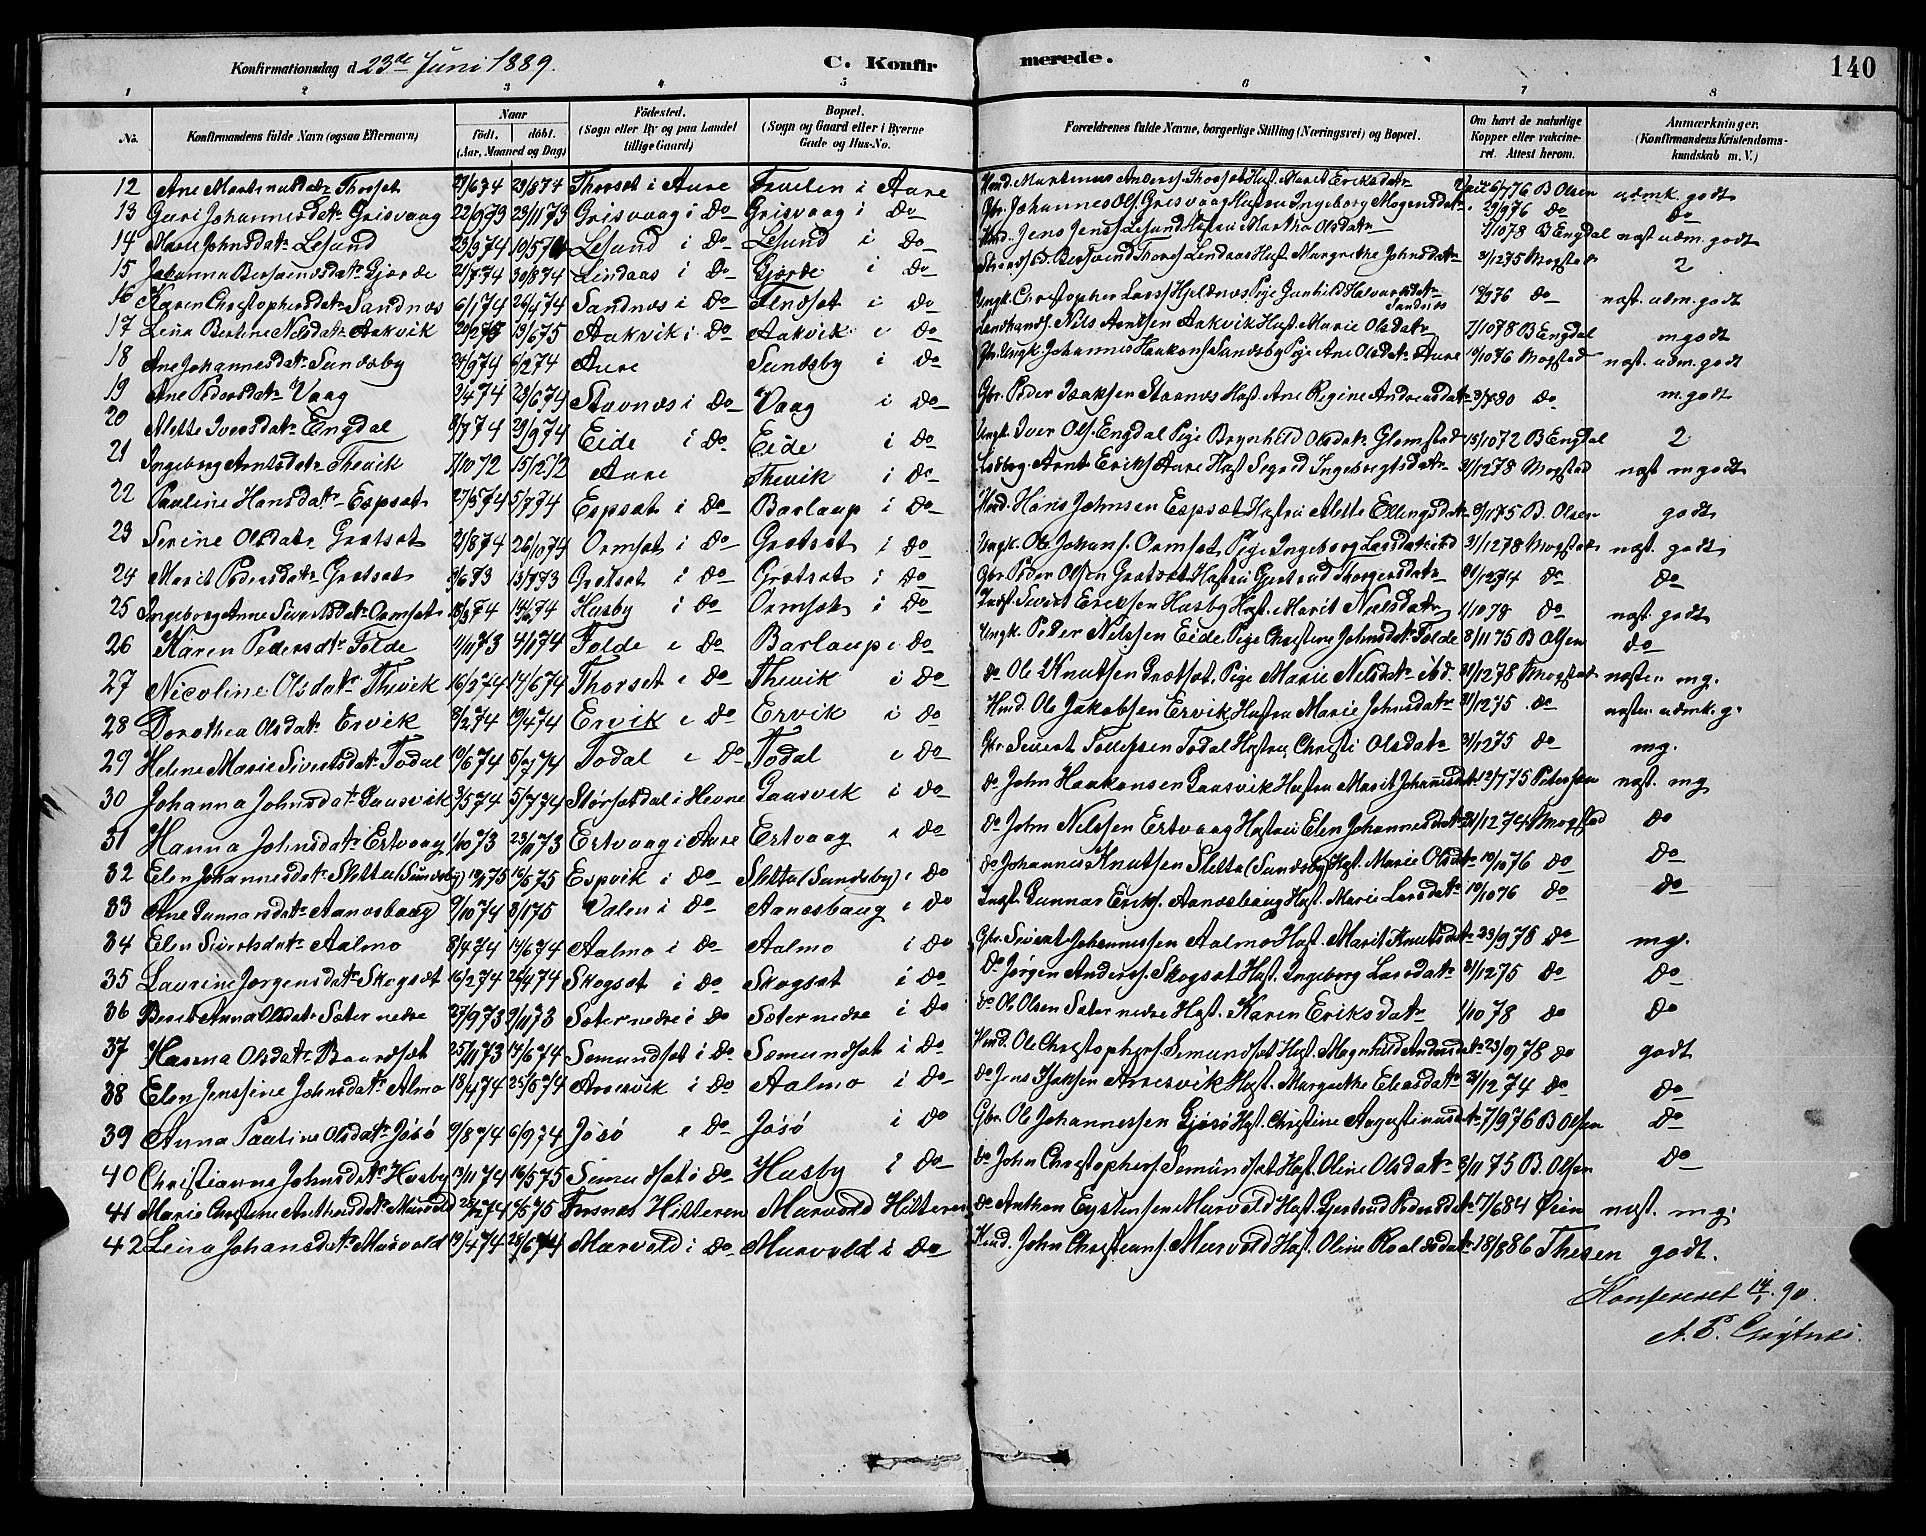 Konfirmationsdag d. 23de Juni 1889. C. Konfirmerede. 140
1 2 3 4 5 6 7 8
No. Konfirmandens fulde Navn (ogsaa Efternavn) Naar födt, döbt. (Aar, Maaned og Dag) Födested. (Sogn eller By og paa Landet tillige Gaard) Bopæl. (Sogn og Gaard eller i Byerne Gade og Hus-No. Forældrenes fulde Navne, borgerlige Stilling (Næringsvei) og Bopæl. Om havt de naturlige Kopper eller vakcineret. Attest herom. Anmærkninger. (Konfirmandens Kristendomskundskab m. V.)
12 Ane Martinusdatr Thorset Thorset i Aure i Aure Martinus Anders. Thorset Hust. Marit Eriksdatr B Olsen udmk. godt
13 Guri Johannesdatr Grisvaag 22/973 23/1173 Grisvaag i Do Grisvaag i Do Gbr. Johannes Ols. Grisvaag Hustru Ingeborg Mogensdatr 29/976 do do
14 Marie Johnsdatr Lesund 23/974 Lesund i Do Lesund i Do Jens Jens. Lesund Hustru Martha Olsdatr 7/1078 B Engdal næst udm. godt
15 Johanna Berssvendsdatr Gjørde 30/874 Lindaas i Do Gjørde i Do Lindaas Hust. Margrethe Johnsdatr 31/1275 Mogstad 2
16 Karen Christophersdatr Sandnæs 6/174 26/474 Sandnæs i Do i Do Ungk. Christopher Lars. Pige Gunhild Halvorsdatr Sandnæs 19/976 do næst. udm. godt
17 Lena Bertine Nilsdatr Aakvik 13/675 Aakvik i Do Aakvik i Do Nils Arntsen Aakvik Hust. Marie Olsdatr 7/1078 B Engdal mgodt
18 Ane Johannesdatr Sundsby Aure Sundsby i Do Ungk. Johannes Haakons. Sundsby Pige Ane Olsdatr Aure 10/1076 Mogstad næst. udm. godt
19 Ane Pedersdatr Vaag 9/474 23/674 Stavnæs i Do Vaag i Do Gbr. Peder Isaksen Stavnæs Hust. Ane Regine Andreasdatr do m. godt
20 Mette Iversdatr Engdal 8/774 29/974 Eide i Do Eide i Do Ungk. Iver Ols. Engdal Pige Brynhild Olsdatr Glomstad B Engdal 2
21 Ingeborg Arntsdatr Thevik 7/1072 Aure Thevik i Do Arnt Eriks. Aure Hust. Sigrid Ingebrigtsdatr 31/1278 Mogstad næst mgodt
22 Pauline Hansdatr Espset 27/574 5/774 Espset i Do Barlaup i Do Hans Johnsen Espset Hustru Mette Ellingsdatr B. Olsen godt
23 Serine Olsdatr Grøtset 21/874 26/1074 Ormset i Do Grøtset i Do Ungk. Ole Johans. Ormset, Pige Ingeborg Larsdatr ibd 31/1278 Mogstad næst. godt
24 Marit Pedersdatr Grøtset 13/773 Grøtset i Do Grøtset i Do Gbr. Peder Olsen Grøtset Hustru Gjertrud Thorgersdatr 31/1274 do do
25 Ingeborg Anne Sivertsdatr Ormset Husby i Do Ormset i Do Sivert Eriksen Husby Hust. Marit Nielsdatr 1/1078 do næst. godt
26 Karen Pedersdatr Folde 1/1173 4/174 Folde i Do Barlaup i Do Ungk. Peder Nilssen Eide, Pige Christine Johnsdatr Folde 8/1175 B Olsen do
27 Nicoline Olsdatr Thevik 16/274 14/674 Thorset i Do Thevik i Do do Ole Knutsen Grøtset, Pige Marie Nelsdatr ibd. 31/1278 Mogstad næsten mg.
28 Dorothea Olsdatr Ervik 9/274 19/474 Ervik i Do Ervik i Do Ole Jakobsen Ervik, Hustru Marie Johnsdatr 31/1275 do næsten udmk. g.
29 Helene Marie Sivertsdatr Todal 19/674 Todal i Do Todal i Do Gbr Sivert Tollefsen Todal Hustru Christi Olsdatr 31/1275 do mg.
30 Johanna Johnsdatr Gaasvik 3/574 5/774 Størsetdal i Hevne Gaasvik i Do do John Haakonsen Gaasvik Hustru Marit Johannesdatr 12/775 Petersen næst. mg
31 Hanna Johnsdatr Ertvaag 1/1073 23/1173 Ertvaag i Aure Ertvaag i Do do John Nilssen Ertvaag Hustru Elen Johannesdatr 31/1274 Mogstad do
32 Elen Johannesdatr Sletta (Sundsby) 13/575 Espvik i Do Sletta (Sundsby) i Do do Johannes Knutsen Sletta (Sundsby) Hust. Marie Olsdatr 10/1076 do do
33 Ane Gunnarsdatr Aanesbaug 9/1074 3/175 Valen i Do Aanesbaug i Do Gunnar Eriks. Aanesbaug Hust. Marie Larsdatr 10/1076 do do
34 Elen Sivertsdatr Aalmo 8/474 14/674 Aalmo i Do Aalmo i Do Gbr. Sivert Johannessen Aalmo Hust. Marit Knutsdatr 23/978 do mg.
35 Laurine Jørgensdatr Skogset 16/274 26/474 Skogset i Do Skogset i Do do Jørgen Anders. Skogset Hust. Ingeborg Larsdatr 31/1275 do do
36 Beret Anna Olsdatr Sæter nedre 27/973 9/1173 Sæter nedre i Do Sæter nedre i Do do Ole Olsen Sæter nedre Hust. Karen Eriksdatr 1/1078 do do
37 Hasena Olsdatr Baardset 25/1173 14/674 Semundset i Do Semundset i Do Ole Christophers. Semundset Hust. Magnhild Andersdatr 23/978 do godt
38 Elen Jenssine Johnsdatr Almo 18/474 25/574 Arresvik i Do Aalmo i Do do Jens Isaksen Arresvik Hust. Margrethe Eliasdatr 31/1274 do do
39 Anna Pauline Olsdatr Jøsø 9/874 6/974 Jøsø i Do Jøsø i Do Gbr. Ole Johannessen Gjøsø Hust. Christine Augustinusdatr 7/976 B Olsen do
40 Christianne Johnsdatr Husby 13/1174 16/575 Semundset i Do Husby i Do do John Christophers. Semundset Hust. Oline Olsdatr 8/1175 B. Olsen do
41 Marie Christine Anthonsdatr Murvold Hitteren Murvold Hitteren do Anthon Eystensen Murvold Hust. Gjertrud Pedersdatr 17/684 Øien næst. mg.
42 Lena Johansdatr Murvold 19/474 25/674 Murvold i Do Murvold i Do John Christians. Murvold Hust. Oline Roaldsdatr 18/886 Thesen godt.
Konfereret 14/1. 90.
A. P.